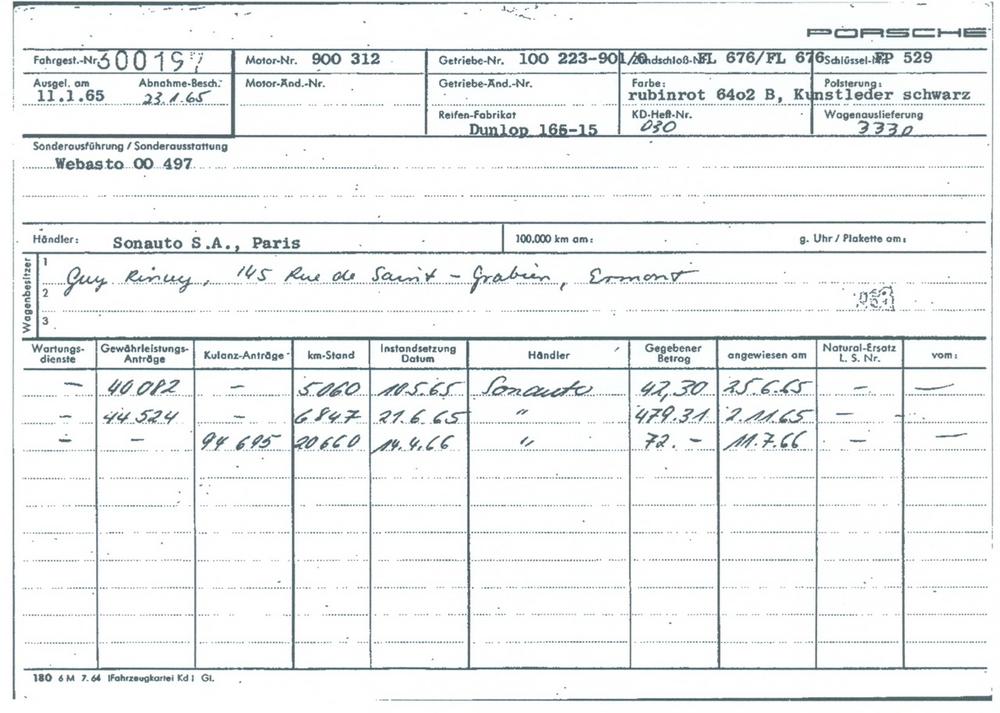 PORSCHE
Fahrgest.-Nr. 300197 Motor-Nr. 900 312 Getriebe-Nr. 100 223-901/0 Zündschloß-Nr. FL 676/FL 676 Schlüssel-Nr. FP 529
Ausgel. am Abnahme-Besch.: Motor-Änd.-Nr. Getriebe-Änd.-Nr. Farbe: Polsterung:
11.1.65 23.1.65 rubinrot 64o2 B, Kunstleder schwarz
Reifen-Fabrikat KD-Heft-Nr. Wagenauslieferung
Dunlop 165-15 030 3330
Sonderausführung / Sonderausstattung
Webasto OO 497
Händler: Sonauto S.A., Paris 100.000 km am: g. Uhr / Plakette am:
Wagenbesitzer
1
Guy Rincy, 145 Rue de Saint - Grabien, Ermont
2
3
Wartungs- Gewährleistungs- Kulanz-Anträge km-Stand Instandsetzung Händler Gegebener angewiesen am Natural-Ersatz vom:
dienste Anträge Datum Betrag L. S. Nr.
— 40082 — 5060 10.5.65 Sonauto 42,30 25.6.65 — —
— 44524 — 6847 21.6.65 " 479.31 2.11.65 — —
— — 94695 20660 14.4.66 " 72.- 11.7.66 — —
180 6 M 7. 64 (Fahrzeugkartei Kd) Gl.